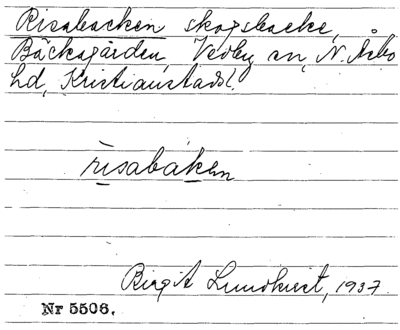 Risabacken skogsbacke,
Bäckagården, Vedby sn, N. Åsbo
hd, Kristianstads l.
risabakən
Birgit Lundkvist, 1937.
Nr 5508.